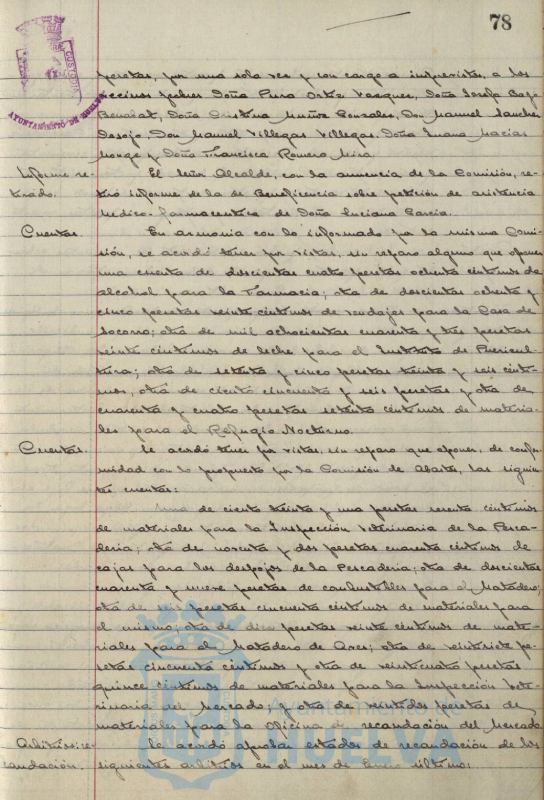 78
AYUNTAMIENTO DE HUELVA
CUSTODIA
pesetas, por una sola vez y con cargo a imprevistos, a los
vecinos pobres Doña Pura Ortiz Vasquez, Doña Josefa Bago
Benabat, Doña Cristina Muñoz Gonzales, Don Manuel Sanches
Don Manuel Villegas Villegas, Doña Juana Macias
Monge y Doña Francisca Romero Mira.
Informe re-
tirado.
El Señor Alcalde, con la anuencia de la Comisión, re-
tiró informe de la de Beneficencia sobre petición de asistencia
Medico-farmaceutica de Doña Luciana Garcia.
Cuentas.
En armonia con lo informado por la misma Comi-
sión, se acordó tener por vistas, sin reparo alguno que oponer
una cuenta de doscientas cuatro pesetas ochenta céntimos de
alcohol para la Farmacia; otra de doscientas ochenta y
cinco pesetas veinte céntimos de vendajes para la Casa de
Socorro; otra de mil ochocientas cuarenta y tres pesetas
veinte céntimos de leche para el Instituto de Puericul-
tura; otra de setenta y cinco pesetas treinta y seis cénti-
mos, otra de ciento cincuenta y seis pesetas y otra de
cuarenta y cuatro pesetas setenta céntimos de materia-
les para el Refugio Nocturno.
Cuentas.
Se acordó tener por vistas, sin reparo que oponer, de confor-
midad con lo propuesto por la Comisión de Abastos, las siguien-
tes cuentas:
Una de ciento treinta y una pesetas sesenta céntimos
de materiales para la Inspección Veterinaria de la Pesca-
deria; otra de noventa y dos pesetas cuarenta céntimos de
cajas para los despojos de la Pescaderia; otra de doscientas
cuarenta y nueve pesetas de combustibles para el Matadero;
otra de seis pesetas cincuenta céntimos de materiales para
el mismo; otra de diez pesetas veinte céntimos de mate-
riales para el Matadero de Aves; otra de veintisiete pe-
setas cincuenta céntimos y otra de veinticuatro pesetas
quince céntimos de materiales para la Inspección Vete-
rinaria del Mercado; y otra de veintidos pesetas de
materiales para la Oficina de recaudación del Mercado
Arbitrios: re-
caudación.
Se acordó aprobar estados de recaudación de los
siguientes arbitrios en el mes de Enero último:
Ayuntamiento de
HUELVA